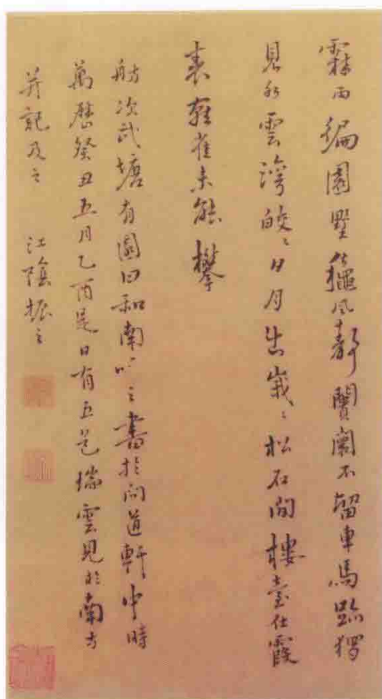 霖雨編園墅風靜闠闤不留車馬跡猶
見水雲灣皎々日月出峩々松石間樓臺仕霞
表雀未能攀
舫次武塘有園曰和南吟之書於問道軒中時
萬曆癸丑五月乙酉是日有五色瑞雲見於南方
并記及之 江陰振之